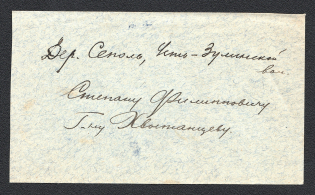 Дер. Сеполь, Усть-Зулинской
вол
Степану Филипповичу
Г-ну Хвостанцеву.